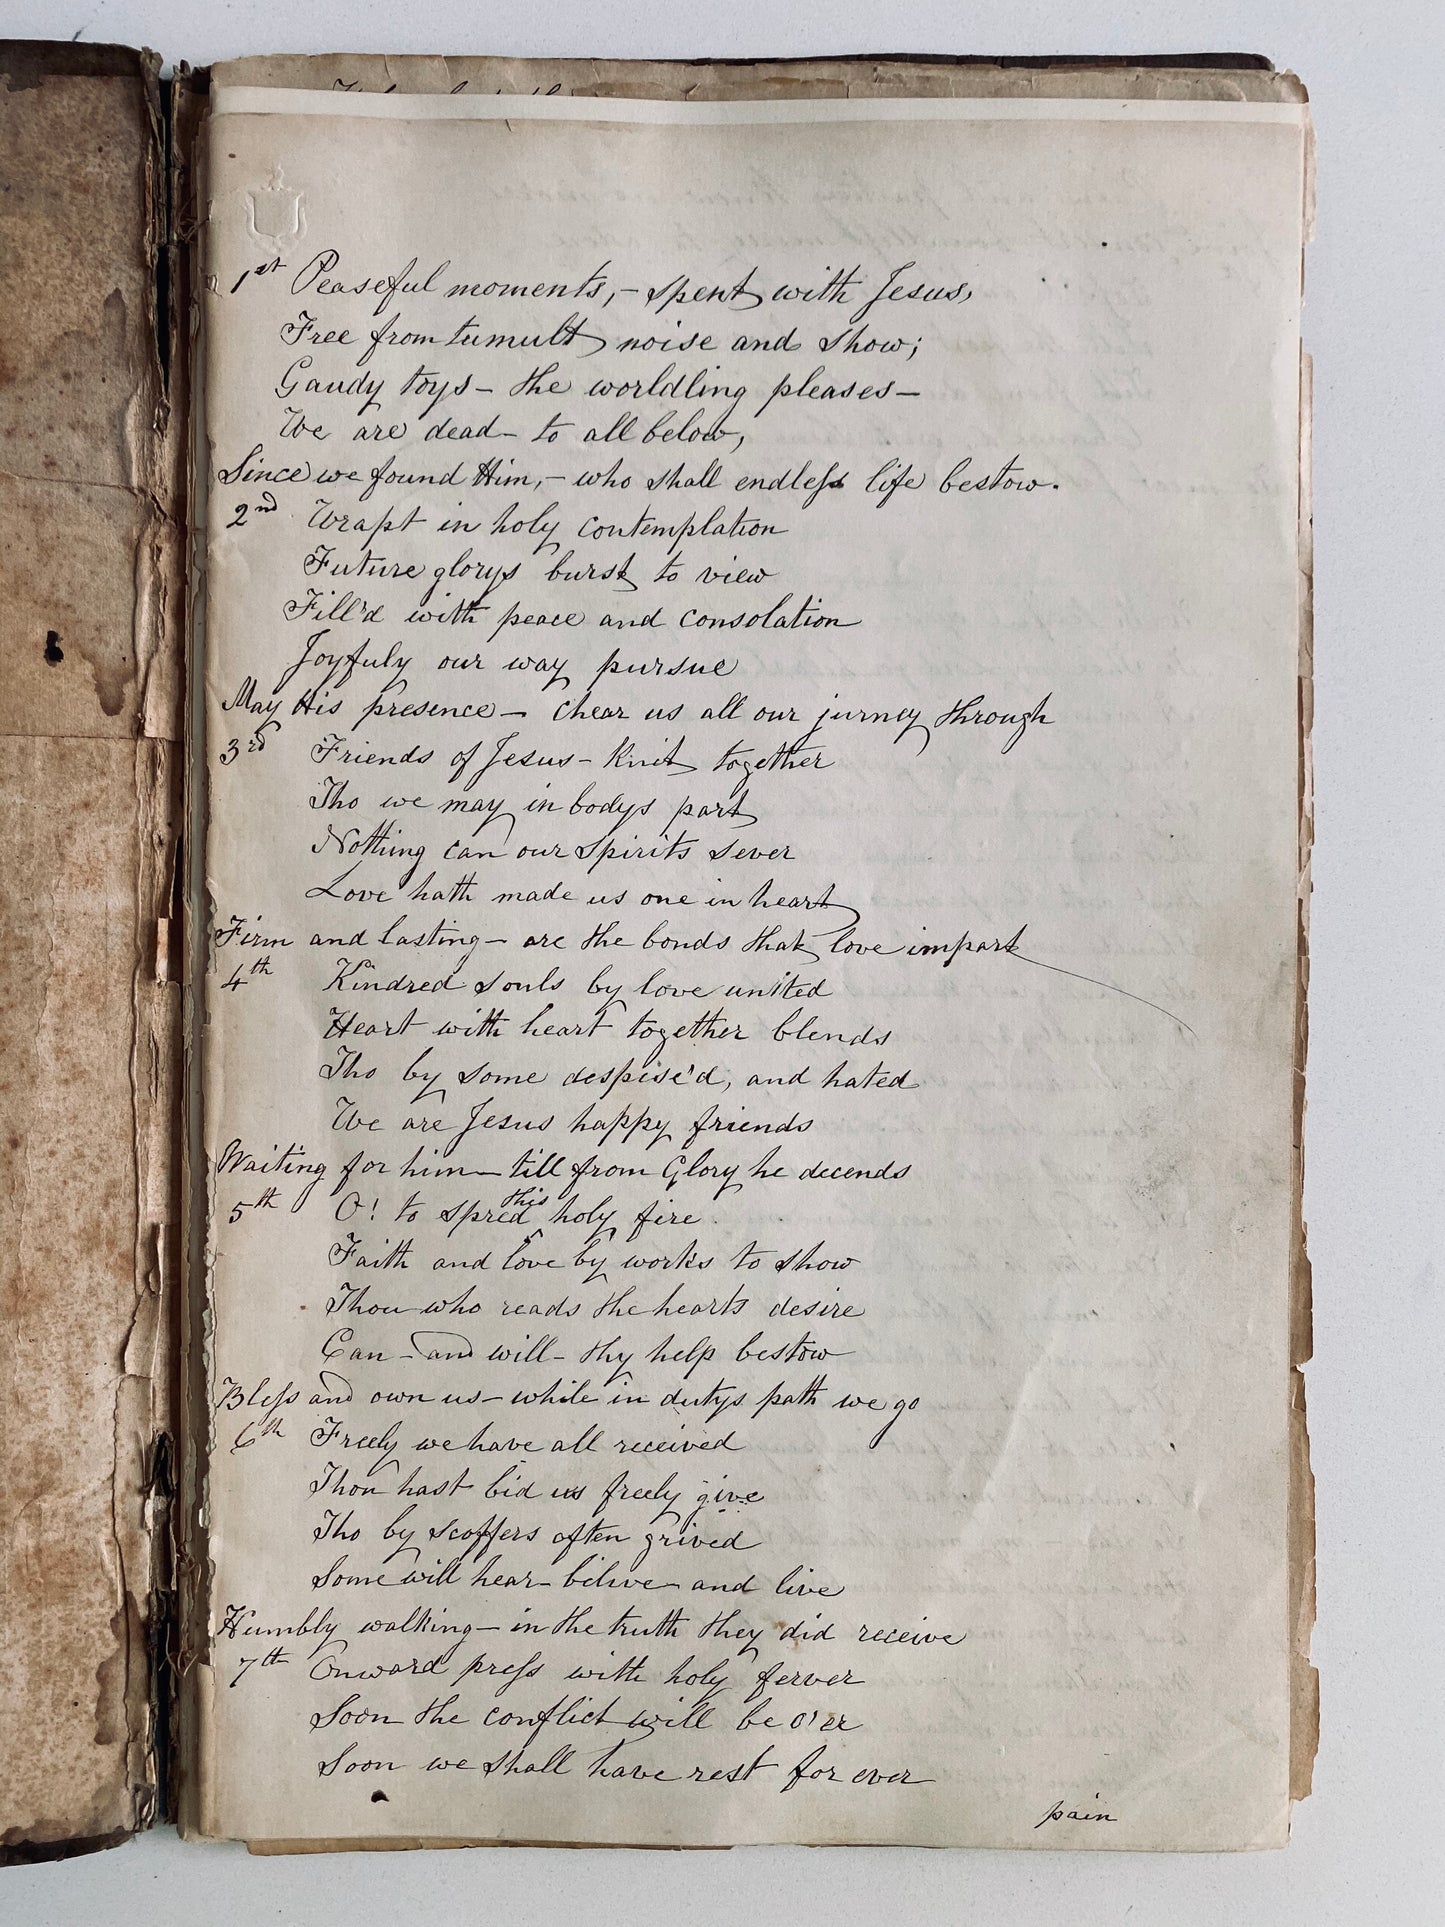 1st Peaseful moments,- spent with Jesus,
Free from tumult noise and show;
Gaudy toys - the worldling pleases -
We are dead - to all below,
Since we found Him, - who shall endless life bestow.
2nd Wrapt in holy contemplation
Future glorys burst to view
Fill'd with peace and consolation
Joyfuly our way pursue
May His presence - chear us all our jurney through
3rd Friends of Jesus - Knit together
Tho we may in bodys part
Nothing can our spirits sever
Love hath made us one in heart
Firm and lasting - are the bonds that love impart
4th Kindred souls by love united
Heart with heart together blends
Tho by some despise'd, and hated
We are Jesus happy friends
Waiting for him - till from Glory he decends
5th O! to spred this holy fire
Faith and love by works to show
Thou who reads the hearts desire
Can - and will - thy help bestow
Bless and own us - while in dutys path we go
6th Freely we have all received
Thou hast bid us freely give
Tho by scoffers often grived
Some will hear - bilive - and live
Humbly walking - in the truth they did receive
7th Onward press with holy ferver
Soon the conflict will be o'er
Soon we shall have rest for ever
pain